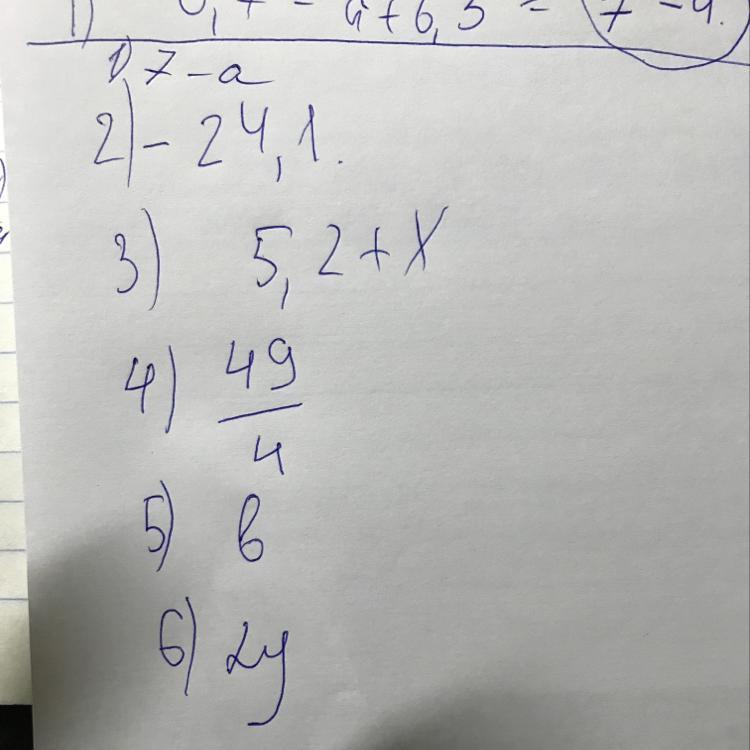 1) - a + 6,5 = 7 - a.
1) 7 - a
2) - 24,1.
3) 5,2 + x
4) 49/4
5) b
6) 2y